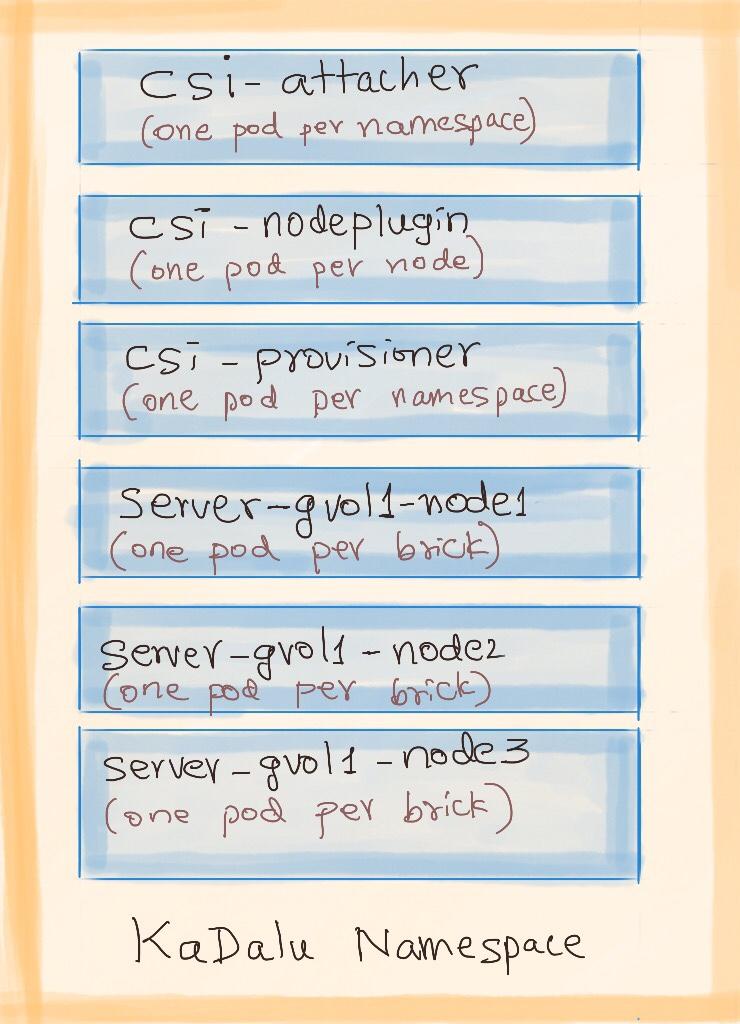 csi-attacher
(one pod per namespace)
csi-nodeplugin
(one pod per node)
csi-provisioner
(one pod per namespace)
server-gvol1-node1
(one pod per brick)
server-gvol1-node2
(one pod per brick)
server-gvol1-node3
(one pod per brick)
KaDalu Namespace